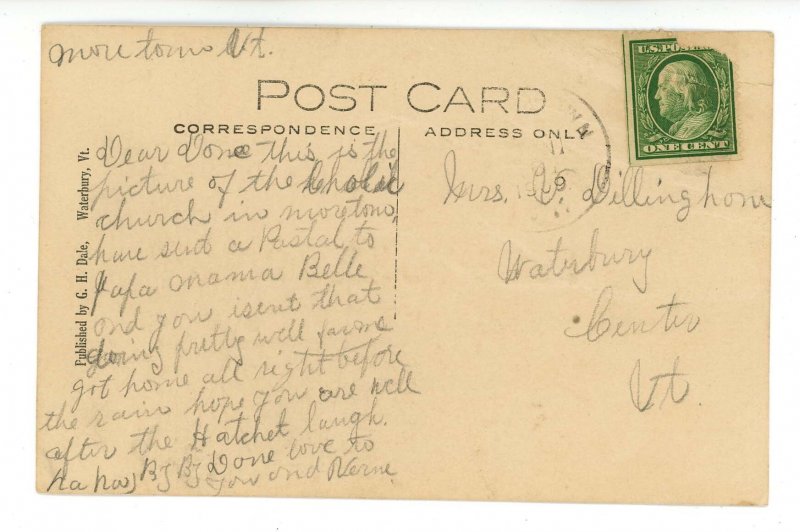 moretown Vt.
POST CARD
CORRESPONDENCE
ADDRESS ONLY
Published by G. H. Dale, Waterbury, Vt.
U.S. POSTAGE
ONE CENT
Dear Done this is the
picture of the
church in moretown
have sent a Postal to
Papa mama Belle
and you isent that
doing pretty well
got home all right before
the rain hope you are well
after the Hatchet laugh.
ha ha By By Done love to
you and Verne
Mrs. V. Dillingham
Waterbury
Center
Vt.